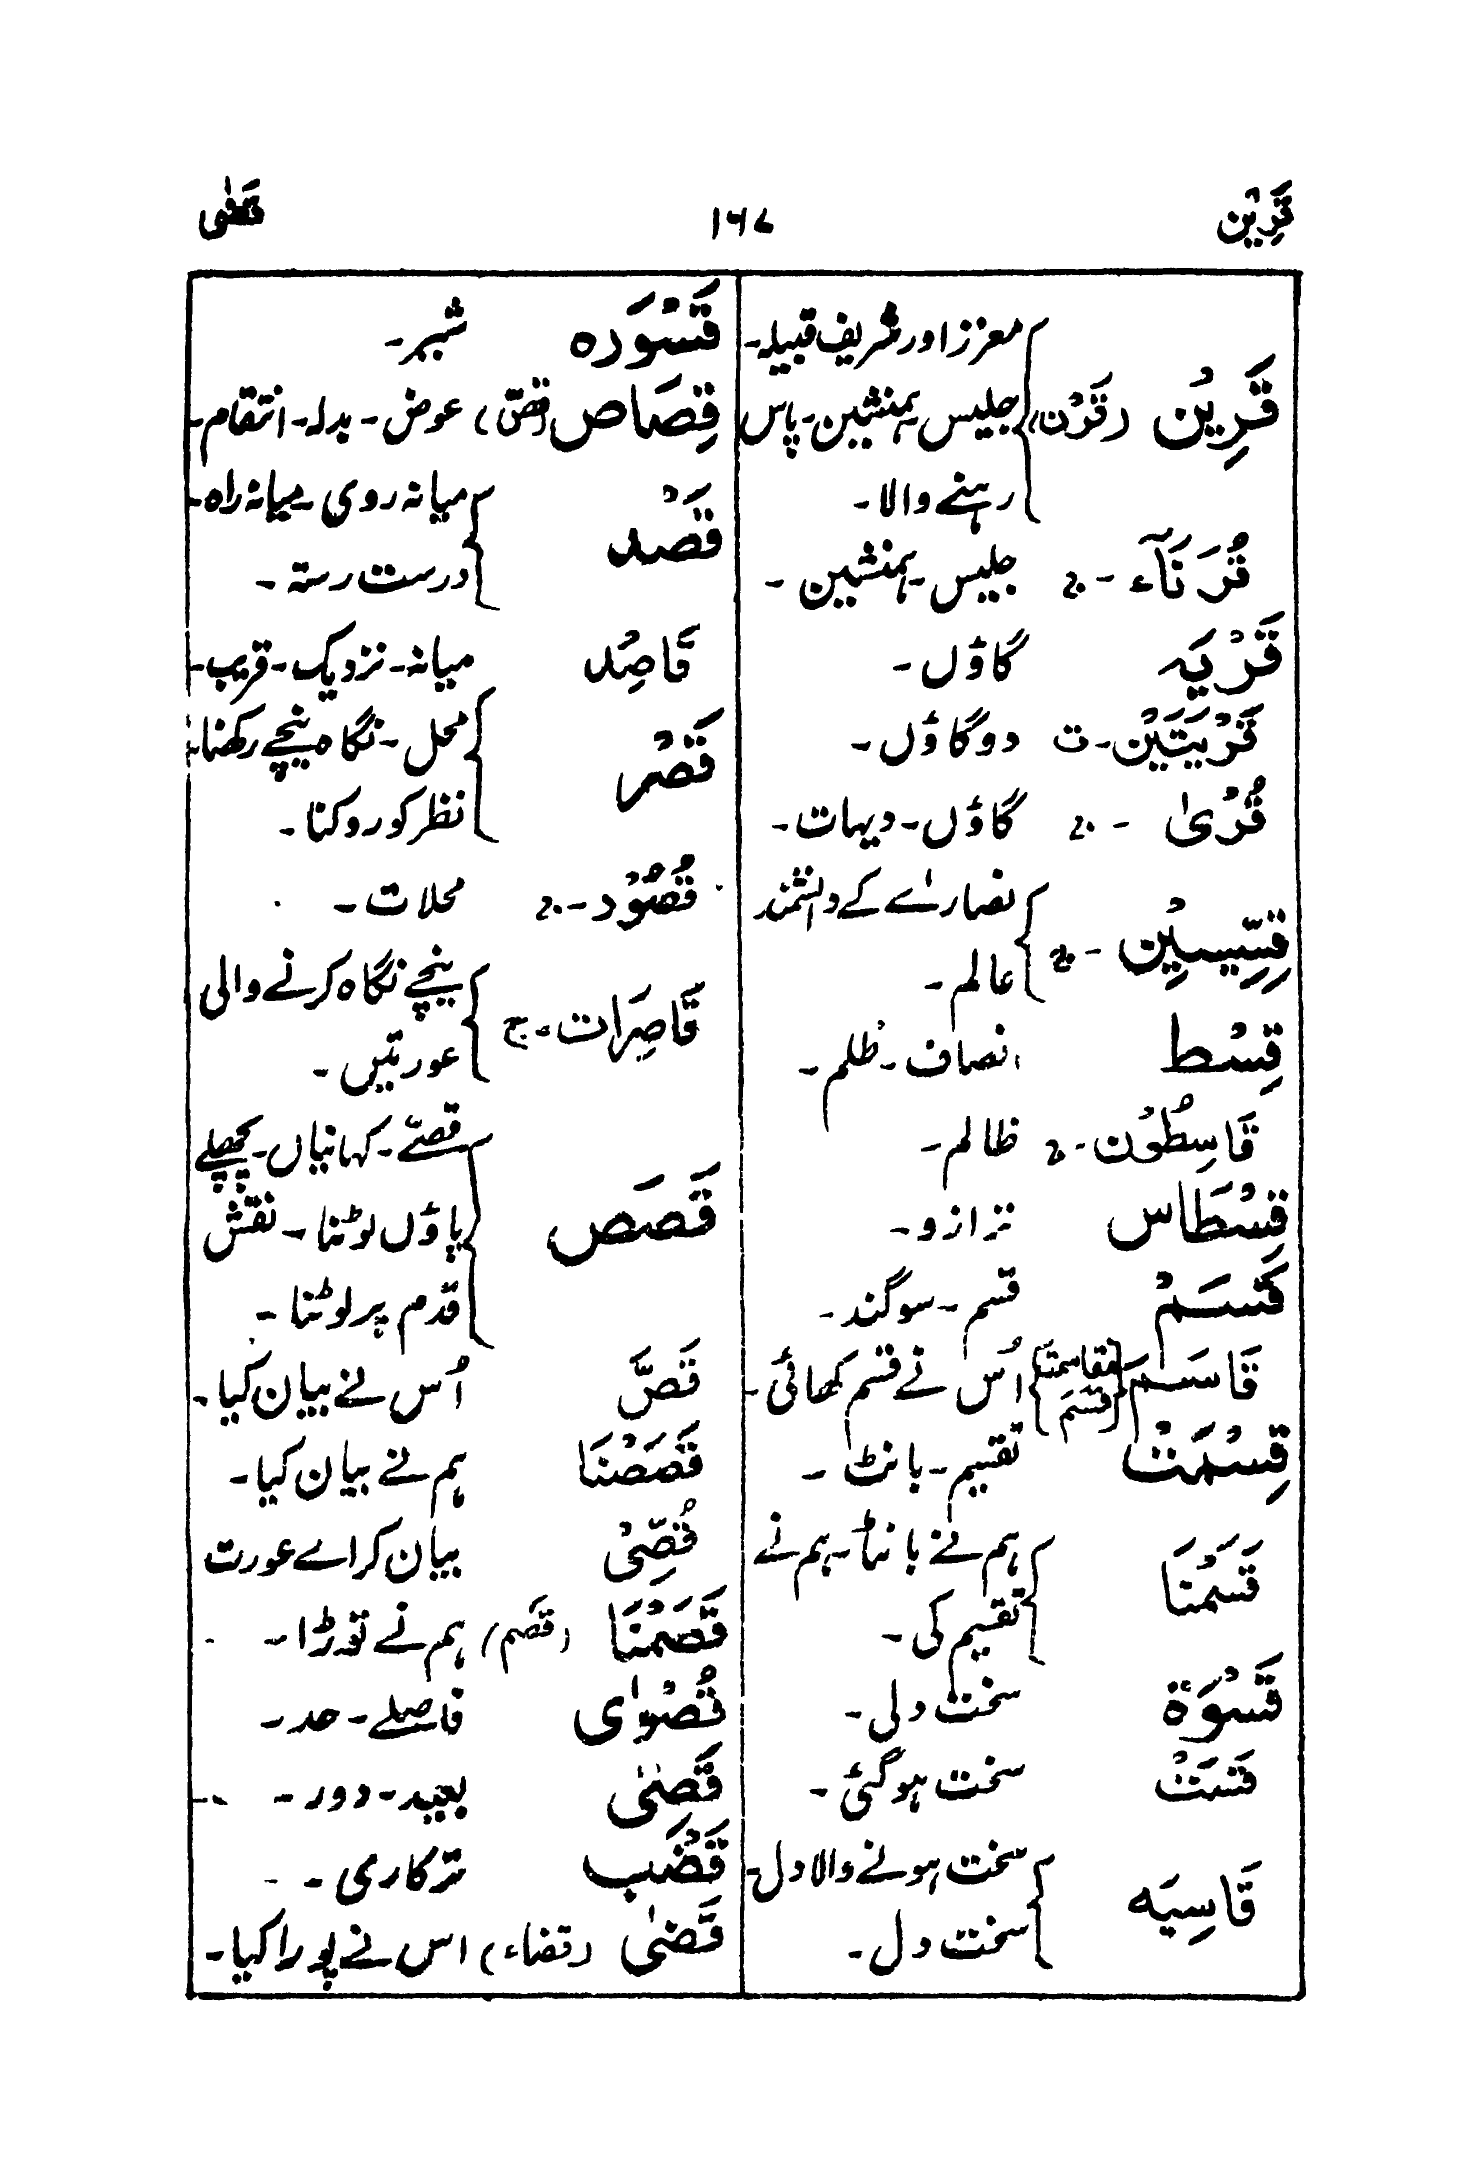 قَرِیْن ۱۶۷ قَضٰی
معزز اور شریف قبیلہ۔
قَرِیْن (قَرْن) جلیس ہمنشین۔ پاس
رہنے والا۔
قُرَنَآء ۔ ج جلیس۔ ہمنشین ۔
قَرْیَہ گاؤں ۔
قَرْیَتَیْن ۔ ت دو گاؤں ۔
قُرٰی ۔ ج گاؤں۔ دیہات ۔
نصارےٰ کے دانشمند
قِسِّیْسِیْن ۔ ج
عالم ۔
قِسْط انصاف ۔ ظلم ۔
قَاسِطُوْن ۔ ج ظالم ۔
قِسْطَاس ترازو ۔
قَسَمْ قسم ۔ سوگند ۔
قَاسَمَ {مقاسمۃ قَسَم} اُس نے قسم کھائی ۔
قِسْمَتْ تقسیم ۔ بانٹ ۔
ہم نے بانٹا۔ ہم نے
قَسَمْنَا
تقسیم کی ۔
قَسْوَة سخت دلی ۔
قَسَتْ سخت ہوگئی ۔
سخت ہونے والا دل۔
قَاسِیَہ
سخت دل ۔
قَسْوَرَہ شیر ۔
قِصَاص (قصّ) عوض ۔ بدلہ۔ انتقام۔
میانہ روی ۔ میانہ راہ۔
قَصْد
درست رستہ ۔
قَاصِد میانہ ۔ نزدیک ۔ قریب۔
محل ۔ نگاہ نیچے رکھنا۔
قَصْر
نظر کو روکنا ۔
قُصُوْر ۔ ج محلات ۔
نیچے نگاہ کرنے والی
قَاصِرَات ۔ ج
عورتیں ۔
قصے ۔ کہانیاں ۔ پچھلے
قَصَص پاؤں لوٹنا ۔ نقش
قدم پر لوٹنا ۔
قَصَّ اُس نے بیان کیا ۔
قَصَصْنَا ہم نے بیان کیا ۔
قُصِّیْ بیان کر اے عورت
قَصَمْنَا (قصم) ہم نے توڑا ۔
قُصْوٰی فاصلے ۔ حد ۔
قَصِیّ بعید ۔ دور ۔
قَضْب ترکاری ۔
قَضٰی (قضاء) اس نے پورا کیا ۔